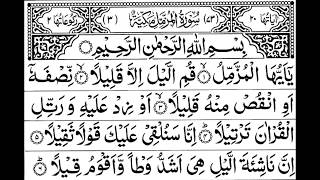 اٰیَاتُهَا ٢٠ (٧٣) سُوْرَةُ الْمُزَّمِّلِ مَکِّیَّةٌ (٣) رُکُوْعَاتُهَا ٢
بِسْمِ اللّٰهِ الرَّحْمٰنِ الرَّحِیْمِ
یٰۤاَیُّهَا الْمُزَّمِّلُ ۙ قُمِ الَّیْلَ اِلَّا قَلِیْلًا ۙ نِّصْفَهٗۤ
اَوِ انْقُصْ مِنْهُ قَلِیْلًا ۙ اَوْ زِدْ عَلَیْهِ وَ رَتِّلِ
الْقُرْاٰنَ تَرْتِیْلًا ؕ اِنَّا سَنُلْقِیْ عَلَیْكَ قَوْلًا ثَقِیْلًا
اِنَّ نَاشِئَةَ الَّیْلِ هِیَ اَشَدُّ وَطْاً وَّ اَقْوَمُ قِیْلًا ؕ